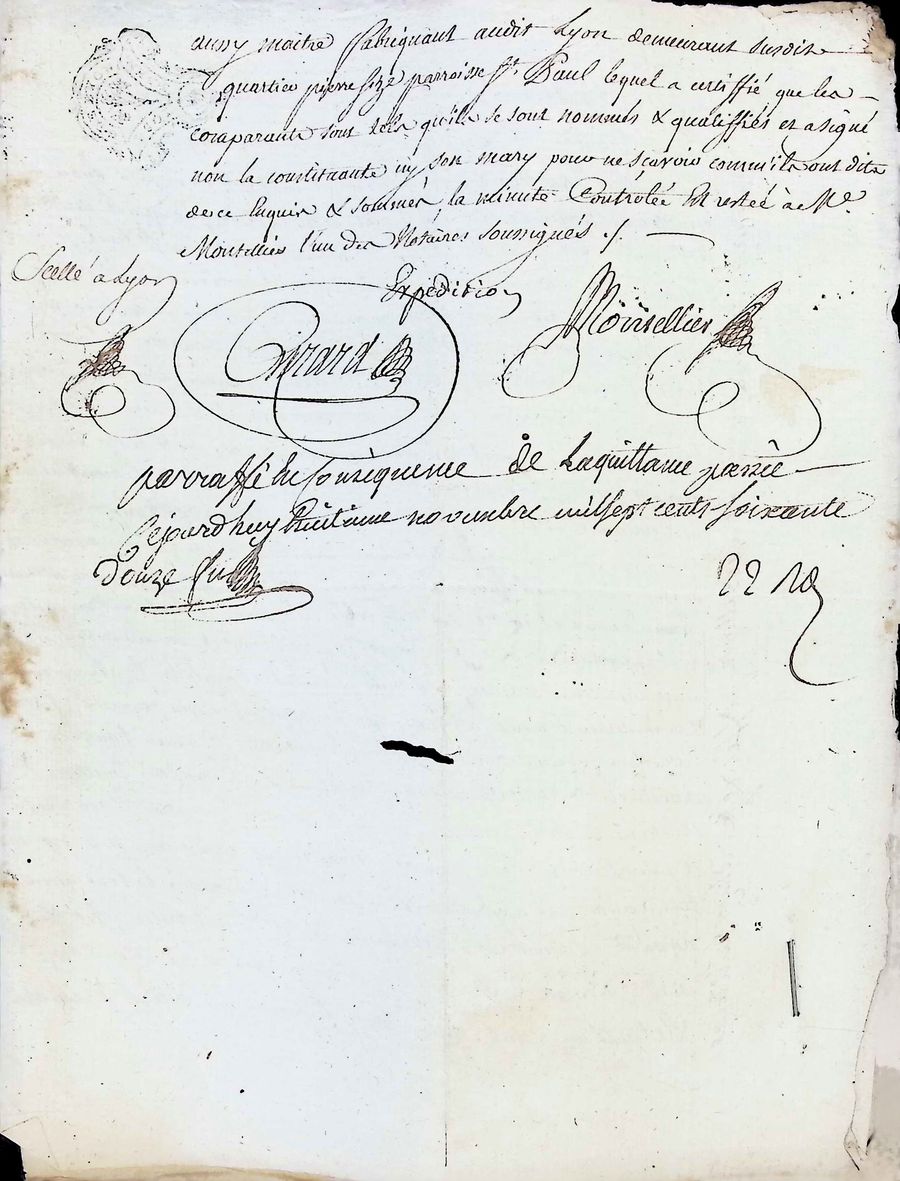 aussy maitre fabriquant audit Lyon demeurant susdit
quartier pierre sizé parroisse St. Paul lequel a certiffié que les
comparants sont tels qu'ils se sont nommés & qualiffiés et a signé
non la constituante ny son mary pour ne sçavoir comm'ils ont dit
de ce Enquis & sommés, la minutte Controlée Est restée à Me.
Montellier l'un des Notaires soussignés ./.
Scellé a Lyon
Expedition
Girard
Montellier
parraffé En Conséquence de La quittance passée
Cejourdhuy huitieme novembre mil sept cents soixante
douze